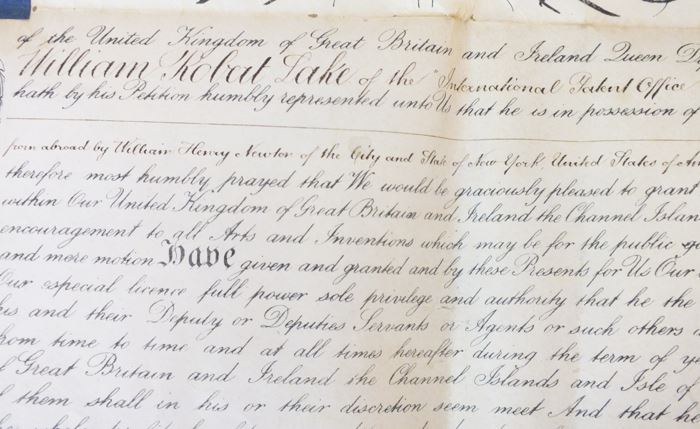 of the United Kingdom of Great Britain and Ireland Queen
William Robert Lake of the "International Patent Office
hath by his Petition humbly represented unto Us that he is in possession of
from abroad by William Henry Newton of the City and State of New York United States of
therefore most humbly prayed that We would be graciously pleased to grant
within Our United Kingdom of Great Britain and Ireland the Channel
encouragement to all Arts and Inventions which may be for the public
and mere motion Have given and granted and by these Presents for Us Our
Our especial licence full power sole privilege and authority that he the
his and their Deputy or Deputies Servants or Agents or such others
from time to time and at all times hereafter during the term of
of Great Britain and Ireland the Channel Islands and Isle of
them shall in his or their discretion seem meet And that he